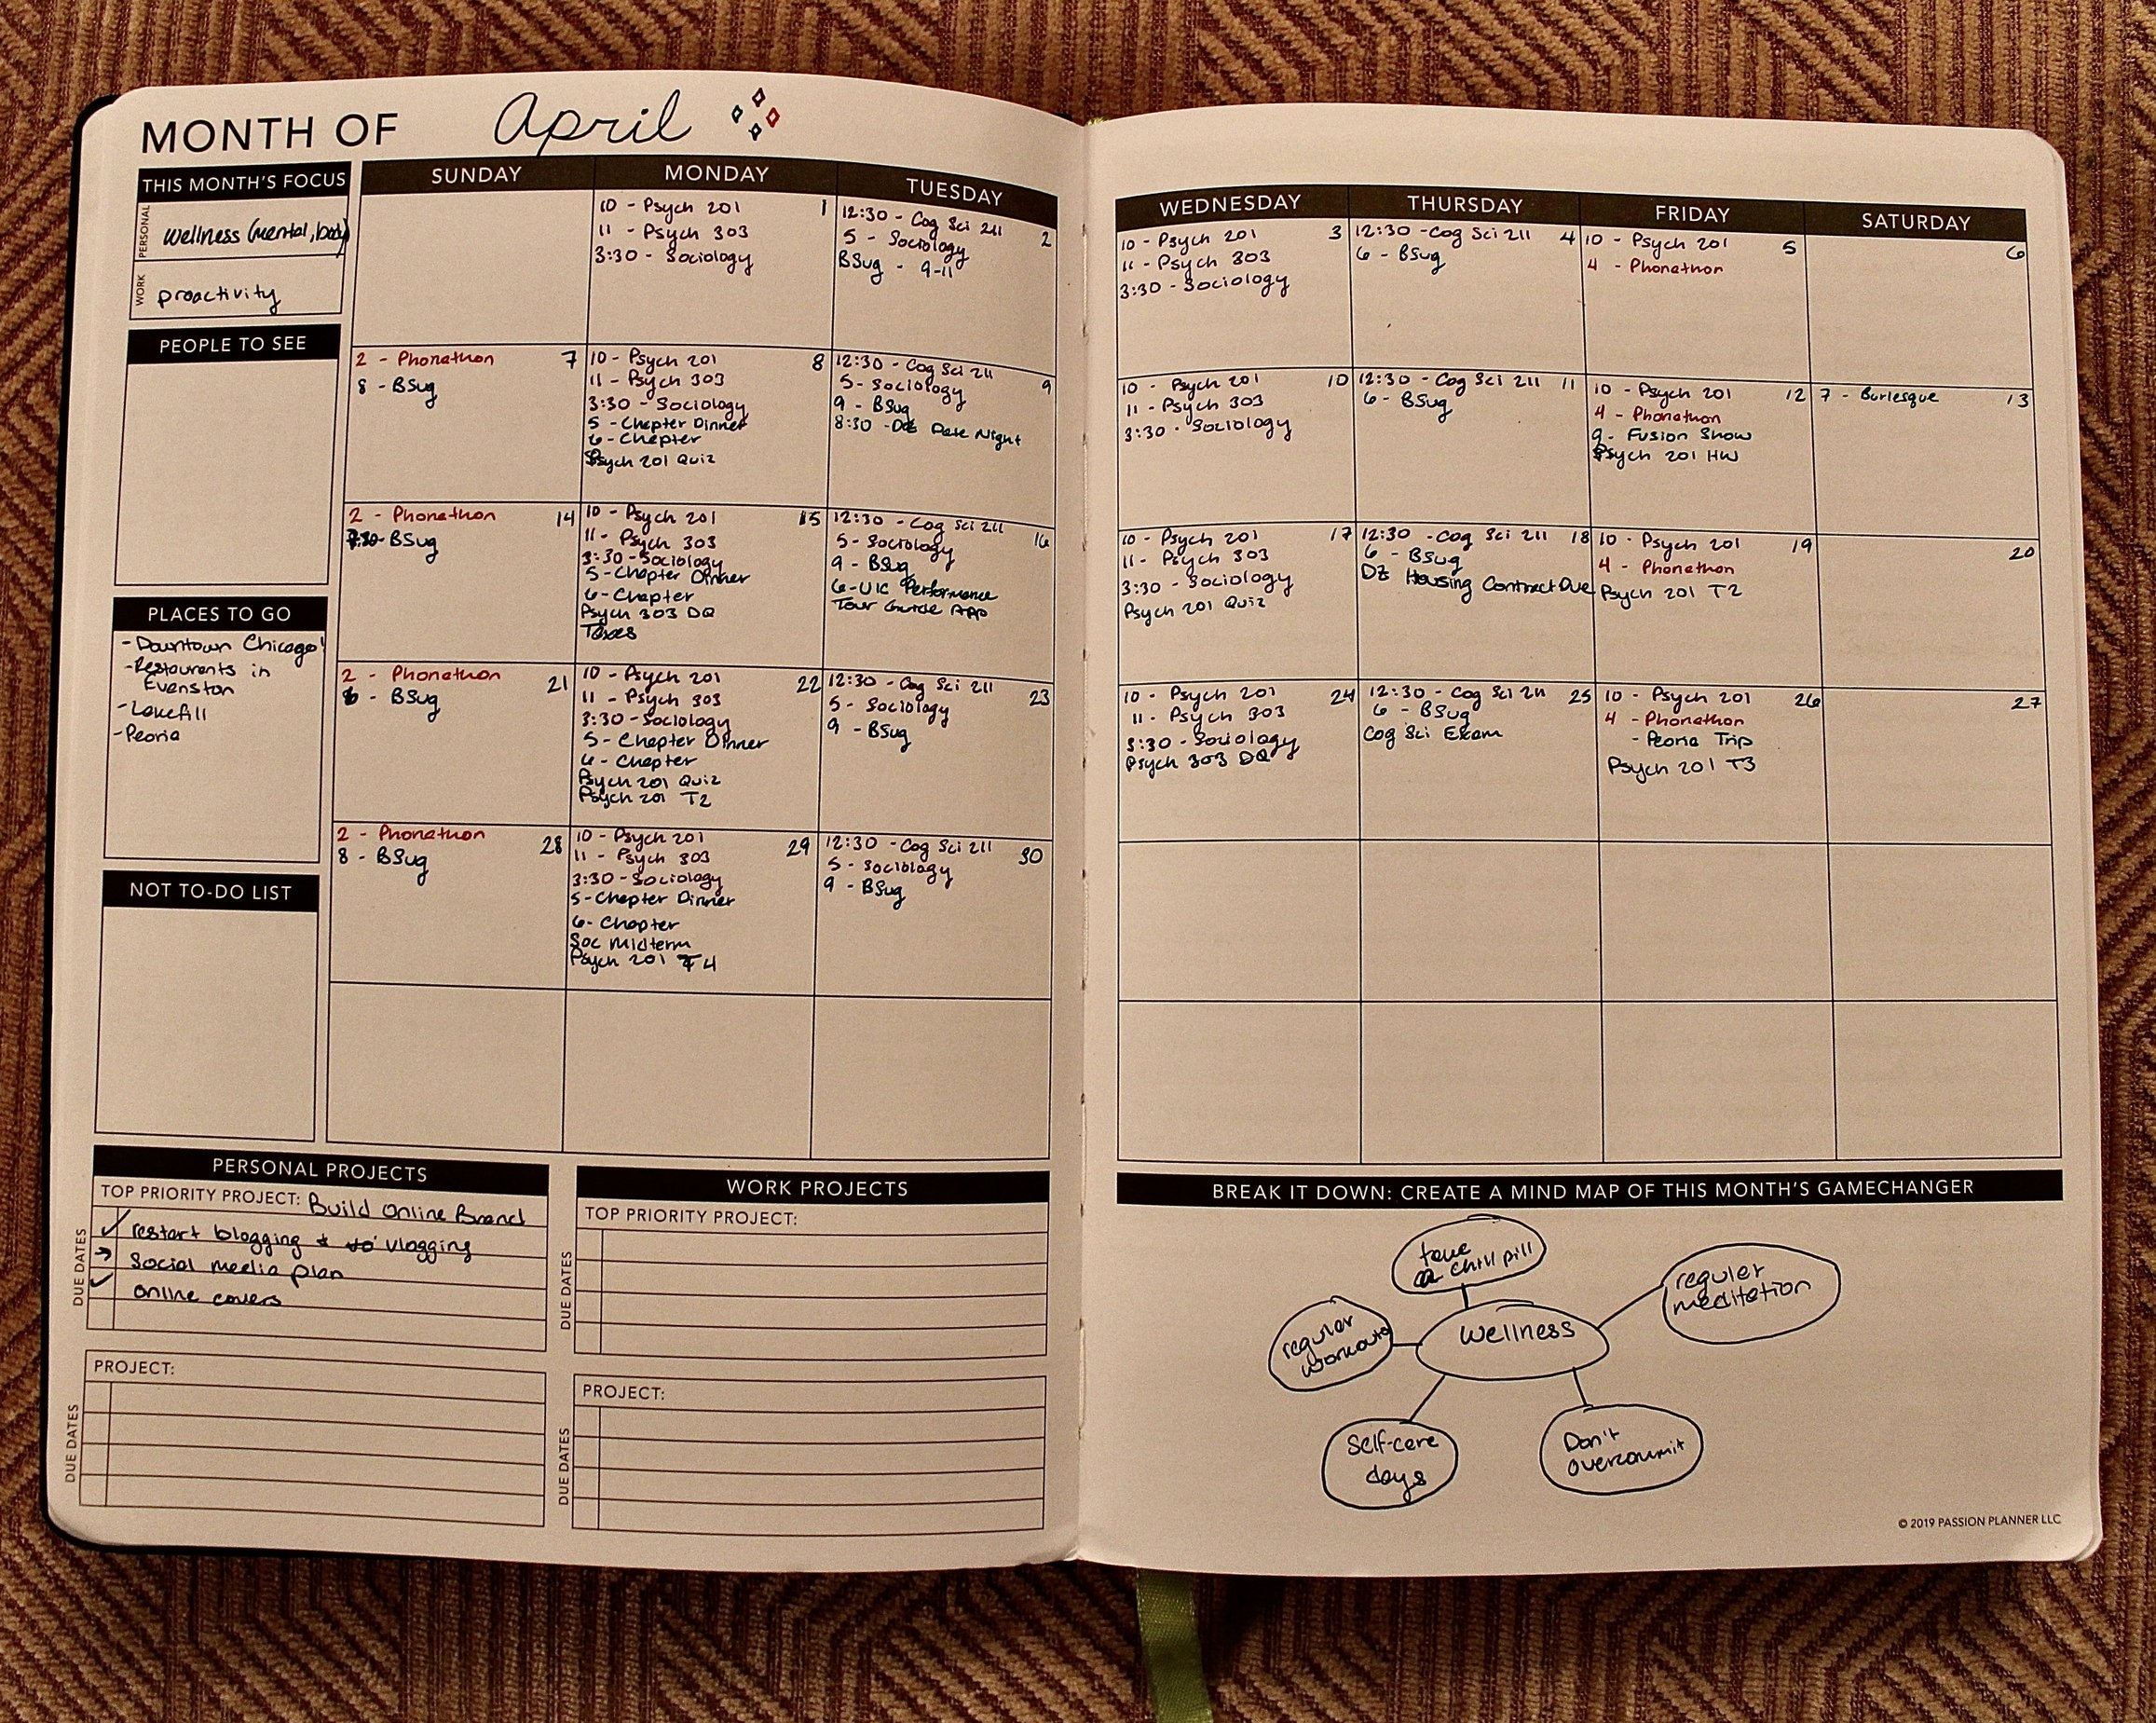 MONTH OF April
THIS MONTH'S FOCUS
PERSONAL
wellness (mental, body)
WORK
proactivity
PEOPLE TO SEE
PLACES TO GO
- Downtown Chicago!
- Restaurents in
Evanston
- Lakefill
- Peoria
NOT TO-DO LIST
SUNDAY
MONDAY
TUESDAY
WEDNESDAY
THURSDAY
FRIDAY
SATURDAY
1
10 - Psych 201
11 - Psych 303
3:30 - Sociology
2
12:30 - Cog Sci 211
5 - Sociology
BSug - 9-11
3
10 - Psych 201
11 - Psych 303
3:30 - Sociology
4
12:30 - Cog Sci 211
6 - BSug
5
10 - Psych 201
4 - Phonathon
6
7
2 - Phonathon
8 - BSug
8
10 - Psych 201
11 - Psych 303
3:30 - Sociology
5 - Chapter Dinner
6 - Chapter
Psych 201 Quiz
9
12:30 - Cog Sci 211
5 - Sociology
9 - BSug
8:30 - DZ Date Night
10
10 - Psych 201
11 - Psych 303
3:30 - Sociology
11
12:30 - Cog Sci 211
6 - BSug
12
10 - Psych 201
4 - Phonathon
9 - Fusion Show
Psych 201 HW
13
7 - Burlesque
14
2 - Phonathon
7:30 - BSug
15
10 - Psych 201
11 - Psych 303
3:30 - Sociology
5 - Chapter Dinner
6 - Chapter
Psych 303 DQ
Taxes
16
12:30 - Cog Sci 211
5 - Sociology
9 - BSug
6 - UIC Performance
Tour Guide App
17
10 - Psych 201
11 - Psych 303
3:30 - Sociology
Psych 201 Quiz
18
12:30 - Cog Sci 211
6 - BSug
DZ Housing Contract Due
19
10 - Psych 201
4 - Phonathon
Psych 201 T2
20
21
2 - Phonathon
8 - BSug
22
10 - Psych 201
11 - Psych 303
3:30 - Sociology
5 - Chapter Dinner
6 - Chapter
Psych 201 Quiz
Psych 201 T2
23
12:30 - Cog Sci 211
5 - Sociology
9 - BSug
24
10 - Psych 201
11 - Psych 303
3:30 - Sociology
Psych 303 DQ
25
12:30 - Cog Sci 211
6 - BSug
Cog Sci Exam
26
10 - Psych 201
4 - Phonathon
- Peoria Trip
Psych 201 T3
27
28
2 - Phonathon
8 - BSug
29
10 - Psych 201
11 - Psych 303
3:30 - Sociology
5 - Chapter Dinner
6 - Chapter
Soc Midterm
Psych 201 T4
30
12:30 - Cog Sci 211
5 - Sociology
9 - BSug
PERSONAL PROJECTS
TOP PRIORITY PROJECT: Build Online Brand
DUE DATES
✓ restart blogging + vlogging
→ Social media plan
✓ online covers
PROJECT:
DUE DATES
WORK PROJECTS
TOP PRIORITY PROJECT:
DUE DATES
PROJECT:
DUE DATES
BREAK IT DOWN: CREATE A MIND MAP OF THIS MONTH'S GAMECHANGER
take
a chill pill
regular
meditation
regular
workouts
wellness
Self-care
days
Don't
overcommit
© 2019 PASSION PLANNER LLC